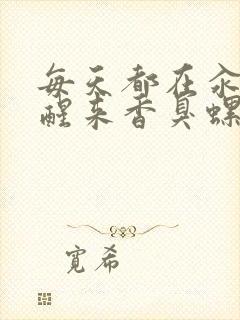 每天都在氽
醒来香臭螺
宽希